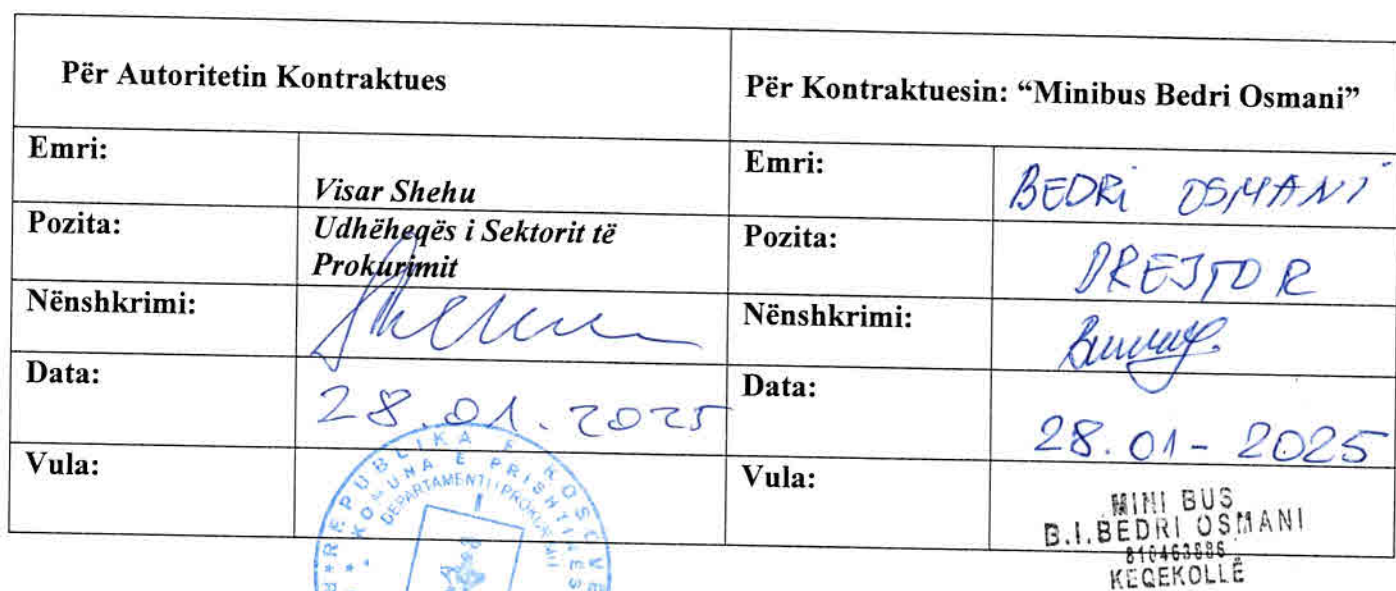 Për Autoritetin Kontraktues
Për Kontraktuesin: “Minibus Bedri Osmani”
Emri:
Visar Shehu
Emri:
BEDRi OSMANI
Pozita:
Udhëheqës i Sektorit të
Prokurimit
Pozita:
DREJTOR
Nënshkrimi:
Nënshkrimi:
Data:
28.01.2025
Data:
28.01-2025
Vula:
REPUBLIKA E KOSOVË
KOMUNA E PRISHTINËS
DEPARTAMENTI I PROKURIMIT
Vula:
MINI BUS
B.I.BEDRI OSMANI
KEQEKOLLË